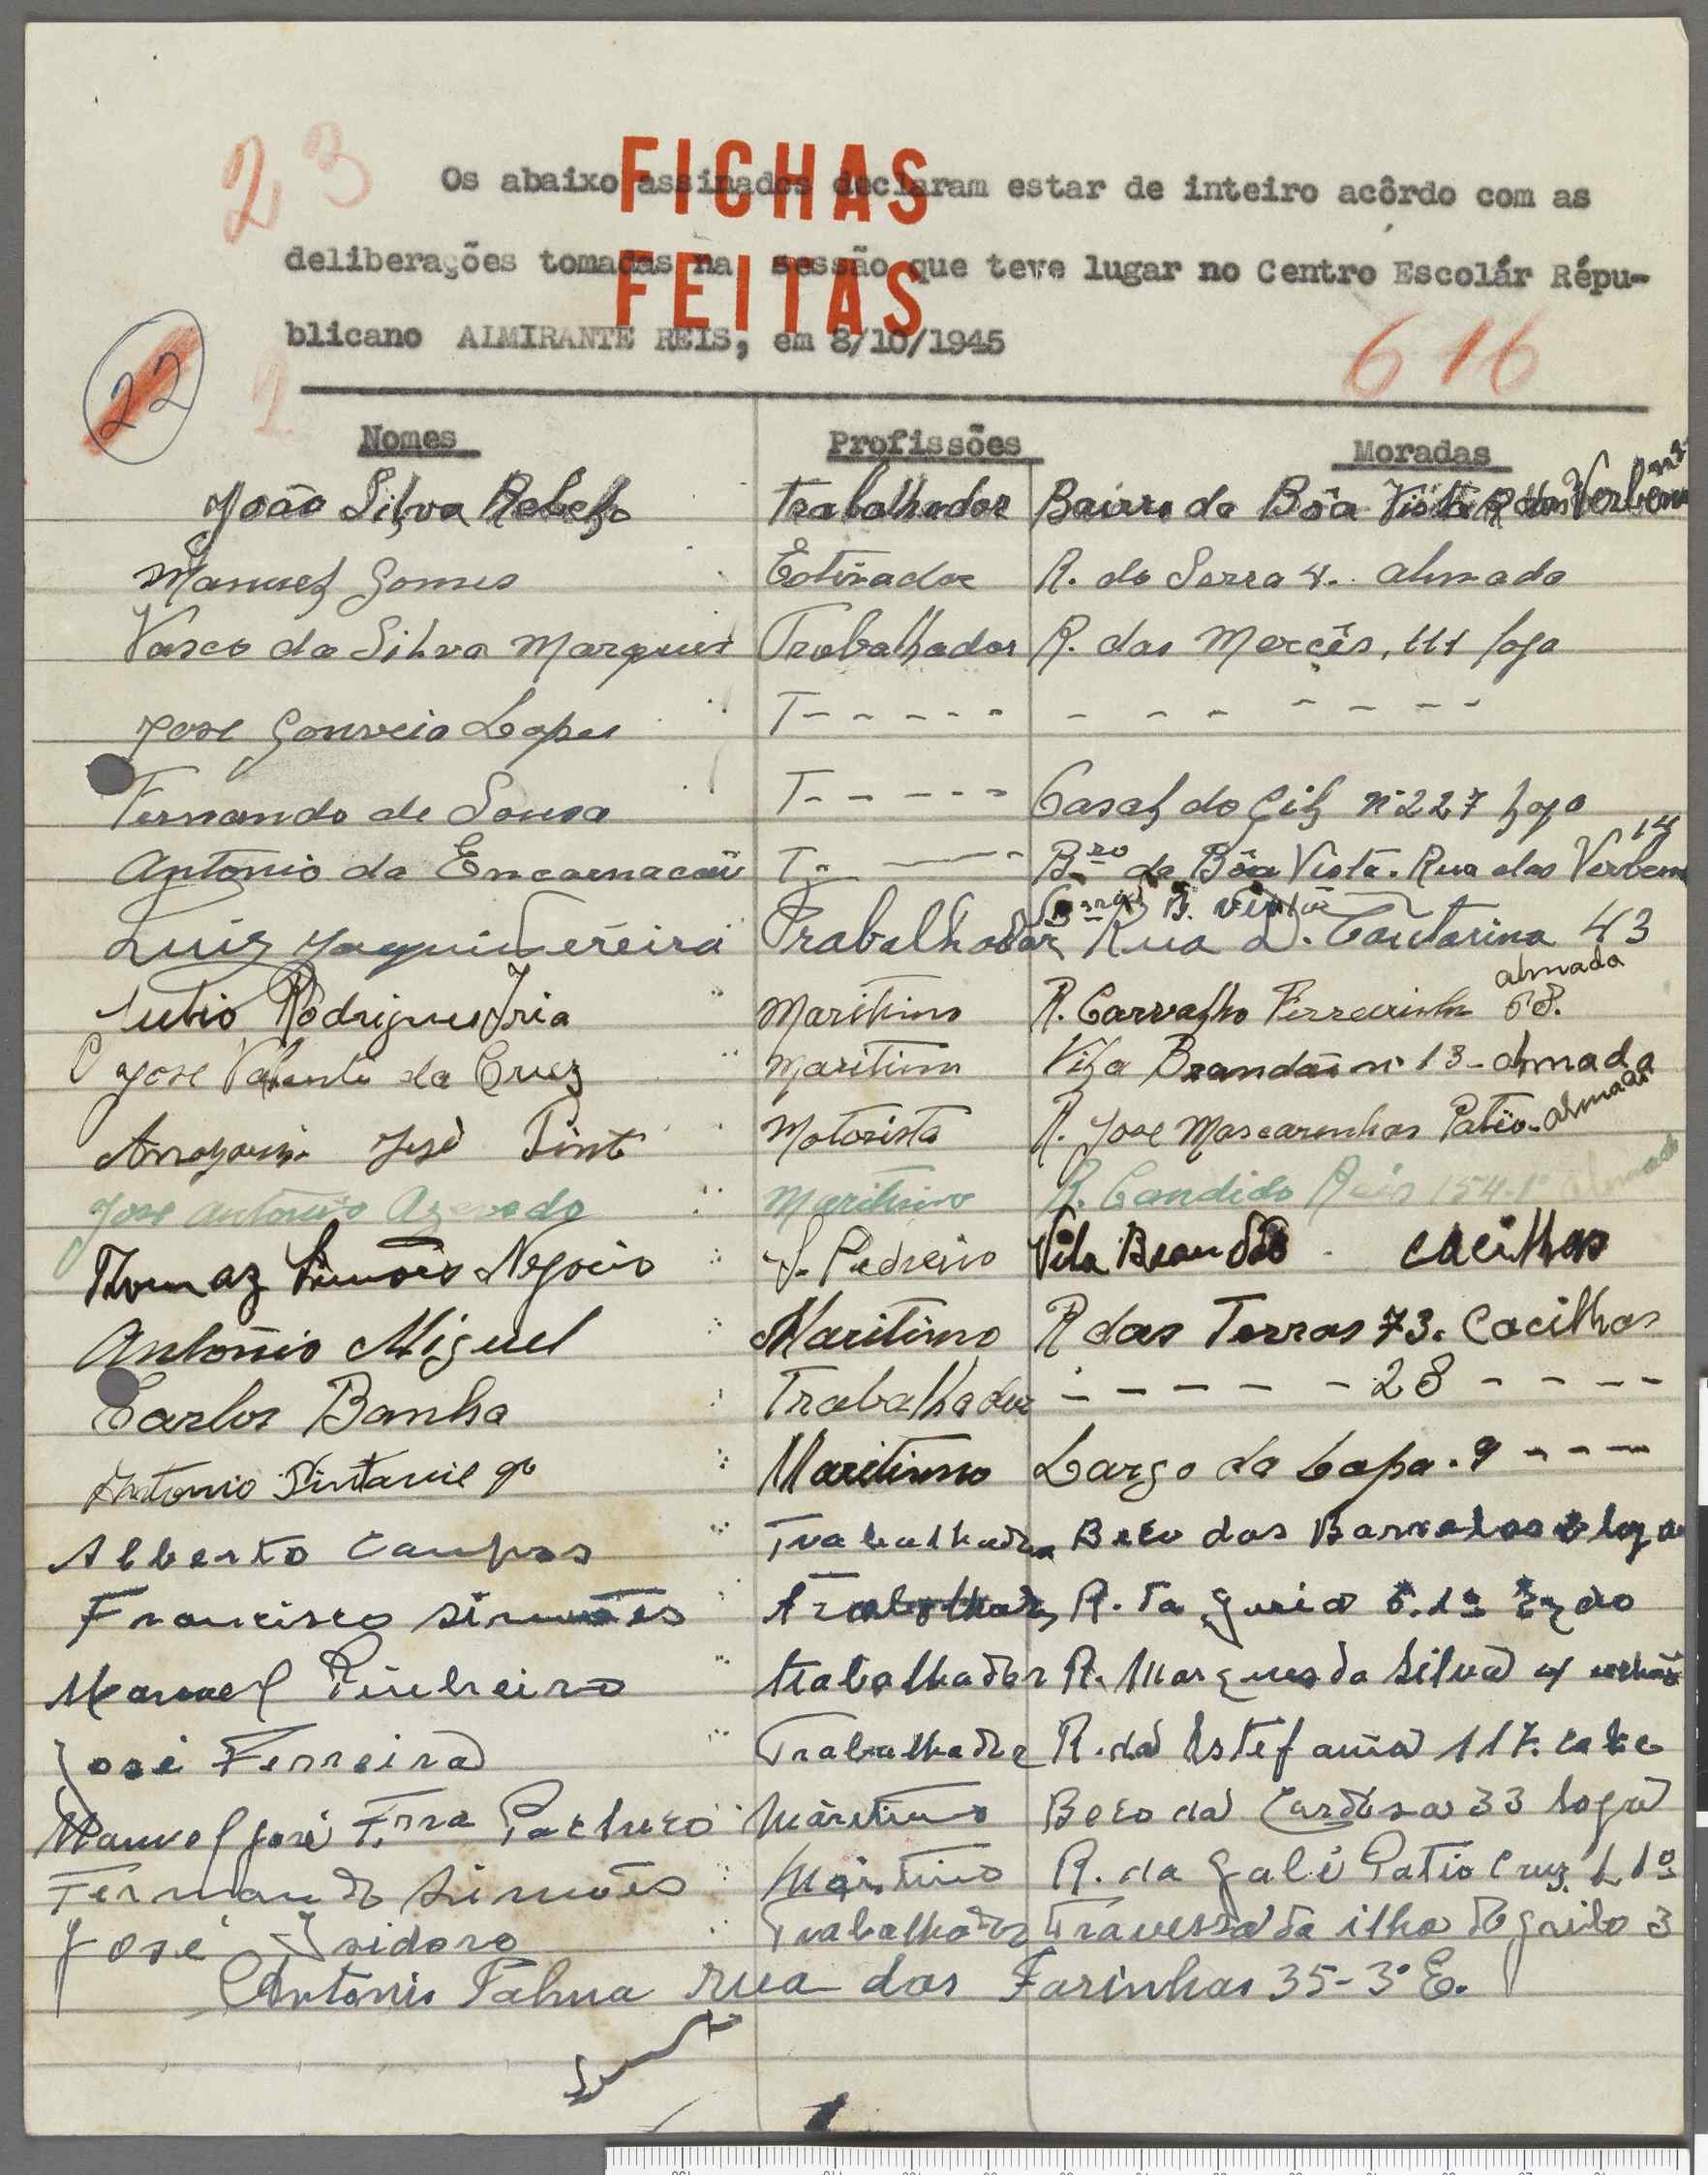 23
FICHAS
FEITAS
Os abaixo assinados declaram estar de inteiro acôrdo com as
deliberações tomadas na sessão que teve lugar no Centro Escolár Répu-
blicano ALMIRANTE REIS, em 8/10/1945
22
2
616
Nomes Profissões Moradas
João Silva Rebelo Trabalhador Bairro da Bôa Vista R das Verbenas
Manuel Gomes Estivador R. da Serra 4. Almada
Vasco da Silva Marques Trabalhador R. das Mercês, 111 loja
José Gouveia Lopes T----- - - - - - - - -
Fernando de Sousa T----- Casal do Gil nº 227 loja
14
Antonio da Encarnacão T. - Bro da Bôa Vista. Rua das Verbenas
Luiz Joaquim Pereira Trabalhador Rua D. Catarina 43
Almada
Julio Rodrigues Iria Maritimo R. Carvalho Ferreirinha 68.
José Valente da Cruz Maritimo Vila Brandão nº 13 - Almada
José Pinto Motorista R. José Mascarenhas Patio - Almada
José Antonio Azevedo Maritimo R. Candido Reis 154-1º Almada
Thomaz Simões Negocio S. Pedreiro Vila Brandão. Cacilhas
Antonio Miguel Maritimo R das Terras 73. Cacilhas
Carlos Banha Trabalhador - - - - - - 28 - - - -
Antonio Maritimo Largo da Lapa. 9 - - - -
Alberto Campos Trabalhador Beco dos Barrelas loja
Francisco Simões Trabalhador R. da Guia 6. 1º
Manuel Pinheiro Trabalhador R. Marques da Silva
José Ferreira Trabalhador R. da Estefania 117. cave
Manuel José Frra Pacheco Maritimo Beco da Cardosa 33 loja
Fernando Simões Maritimo R. da Galé Patio Cruz 1 1º
José Isidoro Trabalhador Travessa da ilha do Grilo 3
Antonio Palma rua das Farinhas 35-3º E.